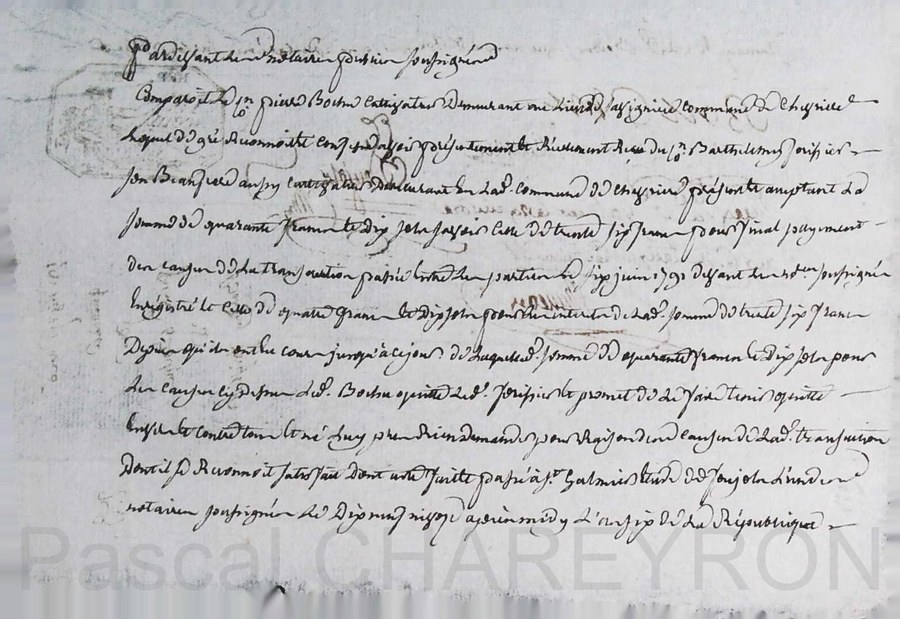 Pardevant les notaires publics soussignés
Comparoit le cn pierre Bochu cultivateur demeurant au lieu de commune de Chevrieres
lequel de gré reconnoit et confesse avoir présentement et réellement reçu du cn Barthelemy
son Beaufrere aussy cultivateur demeurant en lad. commune de Chevrieres présent et acceptant La
somme de quarante francs et dix sols savoir celle de trente six francs pour final payement
des causes de La transaction passée entre les parties le six juin 1791 devant les nores soussignés
Enregistré et celle de quatre francs et dix sols pour les interets de Lad. somme de trente six francs
Depuis qu'ils ont eu cours jusqu'à ce jour. De laquelle d. somme de quarante francs et dix sols pour
Les causes cy dessus Led. Bochu quitte Led. et promet de Le faire tenir quitte
Envers et contre tous et ne luy plus rien demander pour Raison des causes de Lad. transaction
Dont il se Reconnoit satisfait dont acte fait et passé à St. Galmier Etude de L'un des
notaires soussignés Le Dix nivose après midy L'an six de La République
Pascal CHAREYRON